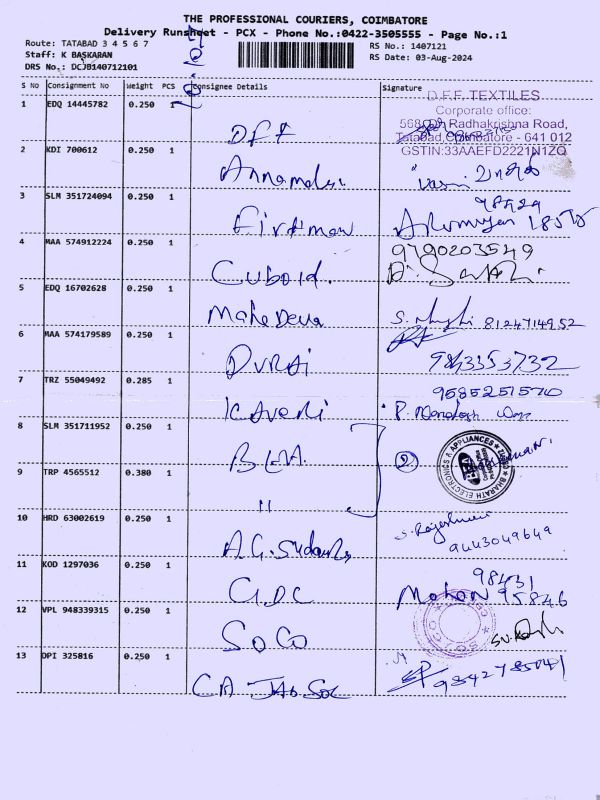 THE PROFESSIONAL COURIERS, COIMBATORE
Delivery Runsheet - PCX - Phone No.:0422-3505555 - Page No.:1
Route: TATABAD 3 4 5 6 7
RS No.: 1407121
Staff: K BASKARAN
RS Date: 03-Aug-2024
DRS No.: DCJB140712101
S No Consignment No Weight PCS Consignee Details Signature
D.F.F. TEXTILES
Corporate office:
568, Dr. Radhakrishna Road,
Tatabad, Coimbatore - 641 012
GSTIN:33AAEFD2221N1ZQ
1 EDQ 14445782 0.250 1 DFF
2 KDI 700612 0.250 1 Annamalai
3 SLM 351724094 0.250 1 98429
18575
4 MAA 574912224 0.250 1 Cuboid. 9790203549
5 EDQ 16702628 0.250 1 Mahadeva S. 8124714952
6 MAA 574179589 0.250 1 DURAI 9843353732
7 TRZ 55049492 0.285 1 Kaveri 9585251570
8 SLM 351711952 0.250 1 BEA
BHARATH ELECTRONICS & APPLIANCES
9 TRP 4565512 0.380 1 "
10 HRD 63002619 0.250 1 A.G. 9443049649
11 KOD 1297036 0.250 1 G.D.C 98431
Mohan 95846
12 VPL 948339315 0.250 1 SOCO
13 DPI 325816 0.250 1 CA 9842785041